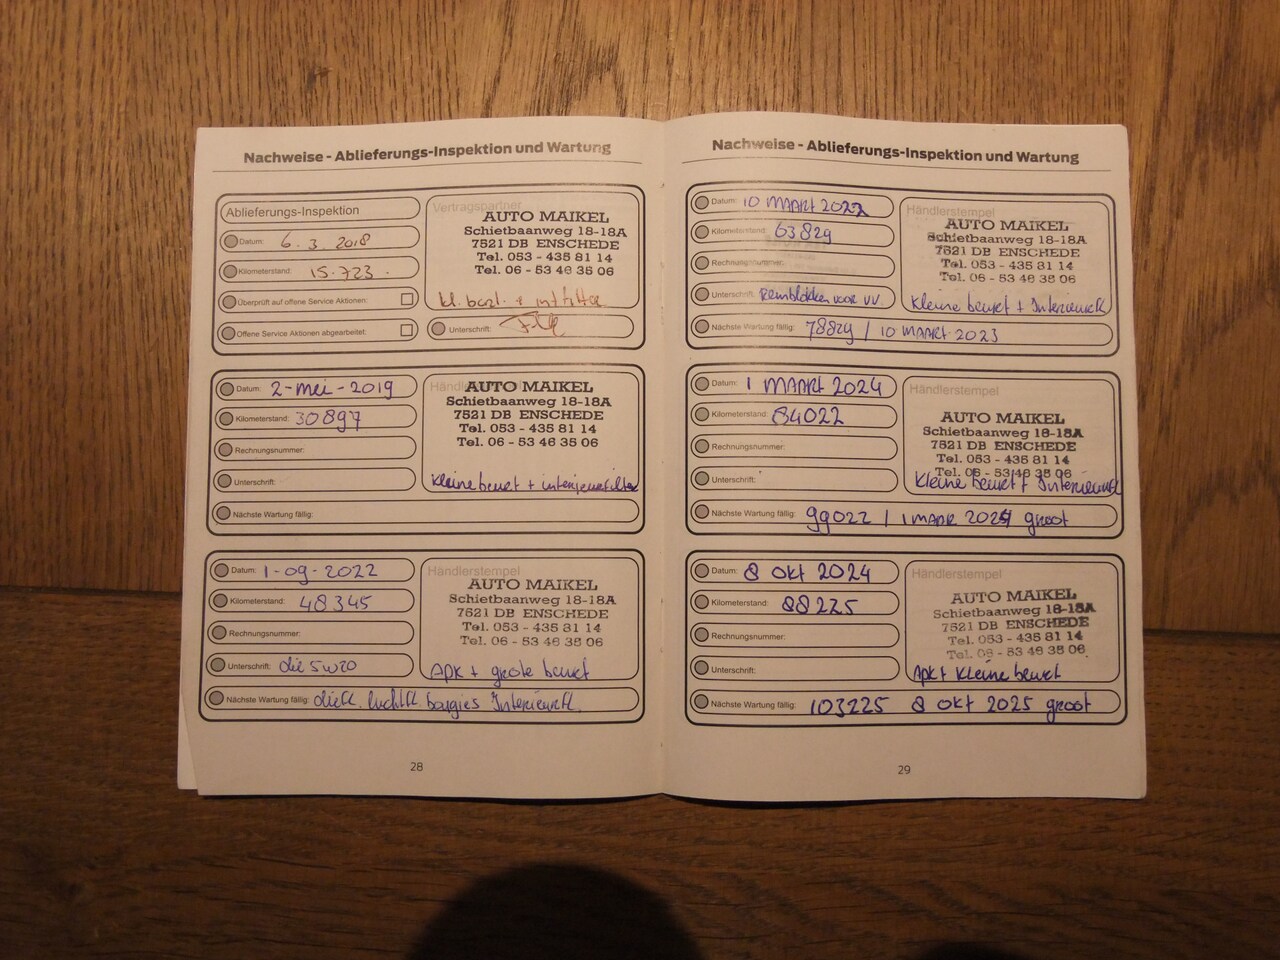 Nachweise - Ablieferungs-Inspektion und Wartung
Ablieferungs-Inspektion
Datum: 6. 3. 2018
Kilometerstand: 15.723.
Überprüft auf offene Service Aktionen:
Offene Service Aktionen abgearbeitet:
Vertragspartner
AUTO MAIKEL
Schietbaanweg 18-18A
7521 DB ENSCHEDE
Tel. 053 - 435 81 14
Tel. 06 - 53 46 35 06
kl. + int filter
Unterschrift:
Datum: 2-mei-2019
Kilometerstand: 30897
Rechnungsnummer:
Unterschrift:
Nächste Wartung fällig:
AUTO MAIKEL
Schietbaanweg 18-18A
7521 DB ENSCHEDE
Tel. 053 - 435 81 14
Tel. 06 - 53 46 35 06
Kleine beurt + interieurfilter
Datum: 1-09-2022
Kilometerstand: 48345
Rechnungsnummer:
Unterschrift: olie 5w20
Händlerstempel
AUTO MAIKEL
Schietbaanweg 18-18A
7521 DB ENSCHEDE
Tel. 053 - 435 81 14
Tel. 06 - 53 46 35 06
APK + grote beurt
Nächste Wartung fällig: olief. luchtf. bougies Interieurf.
28
Nachweise - Ablieferungs-Inspektion und Wartung
Datum: 10 MAART 2022
Kilometerstand: 63829
Rechnungsnummer:
Unterschrift: Remblokken voor VV.
Händlerstempel
AUTO MAIKEL
Schietbaanweg 18-18A
7521 DB ENSCHEDE
Tel. 053 - 435 81 14
Tel. 06 - 53 46 35 06
Kleine beurt + Interieurf.
Nächste Wartung fällig: 78829 / 10 MAART 2023
Datum: 1 MAART 2024
Kilometerstand: 84022
Rechnungsnummer:
Unterschrift:
Händlerstempel
AUTO MAIKEL
Schietbaanweg 18-18A
7521 DB ENSCHEDE
Tel. 053 - 435 81 14
Tel. 06 - 53 46 35 06
Kleine beurt + Interieurf.
Nächste Wartung fällig: 99022 / 1 MAAR 2025 groot
Datum: 8 Okt 2024
Kilometerstand: 88225
Rechnungsnummer:
Unterschrift:
Händlerstempel
AUTO MAIKEL
Schietbaanweg 18-18A
7521 DB ENSCHEDE
Tel. 053 - 435 81 14
Tel. 06 - 53 46 35 06
Apk + Kleine beurt
Nächste Wartung fällig: 103225 8 Okt 2025 groot
29